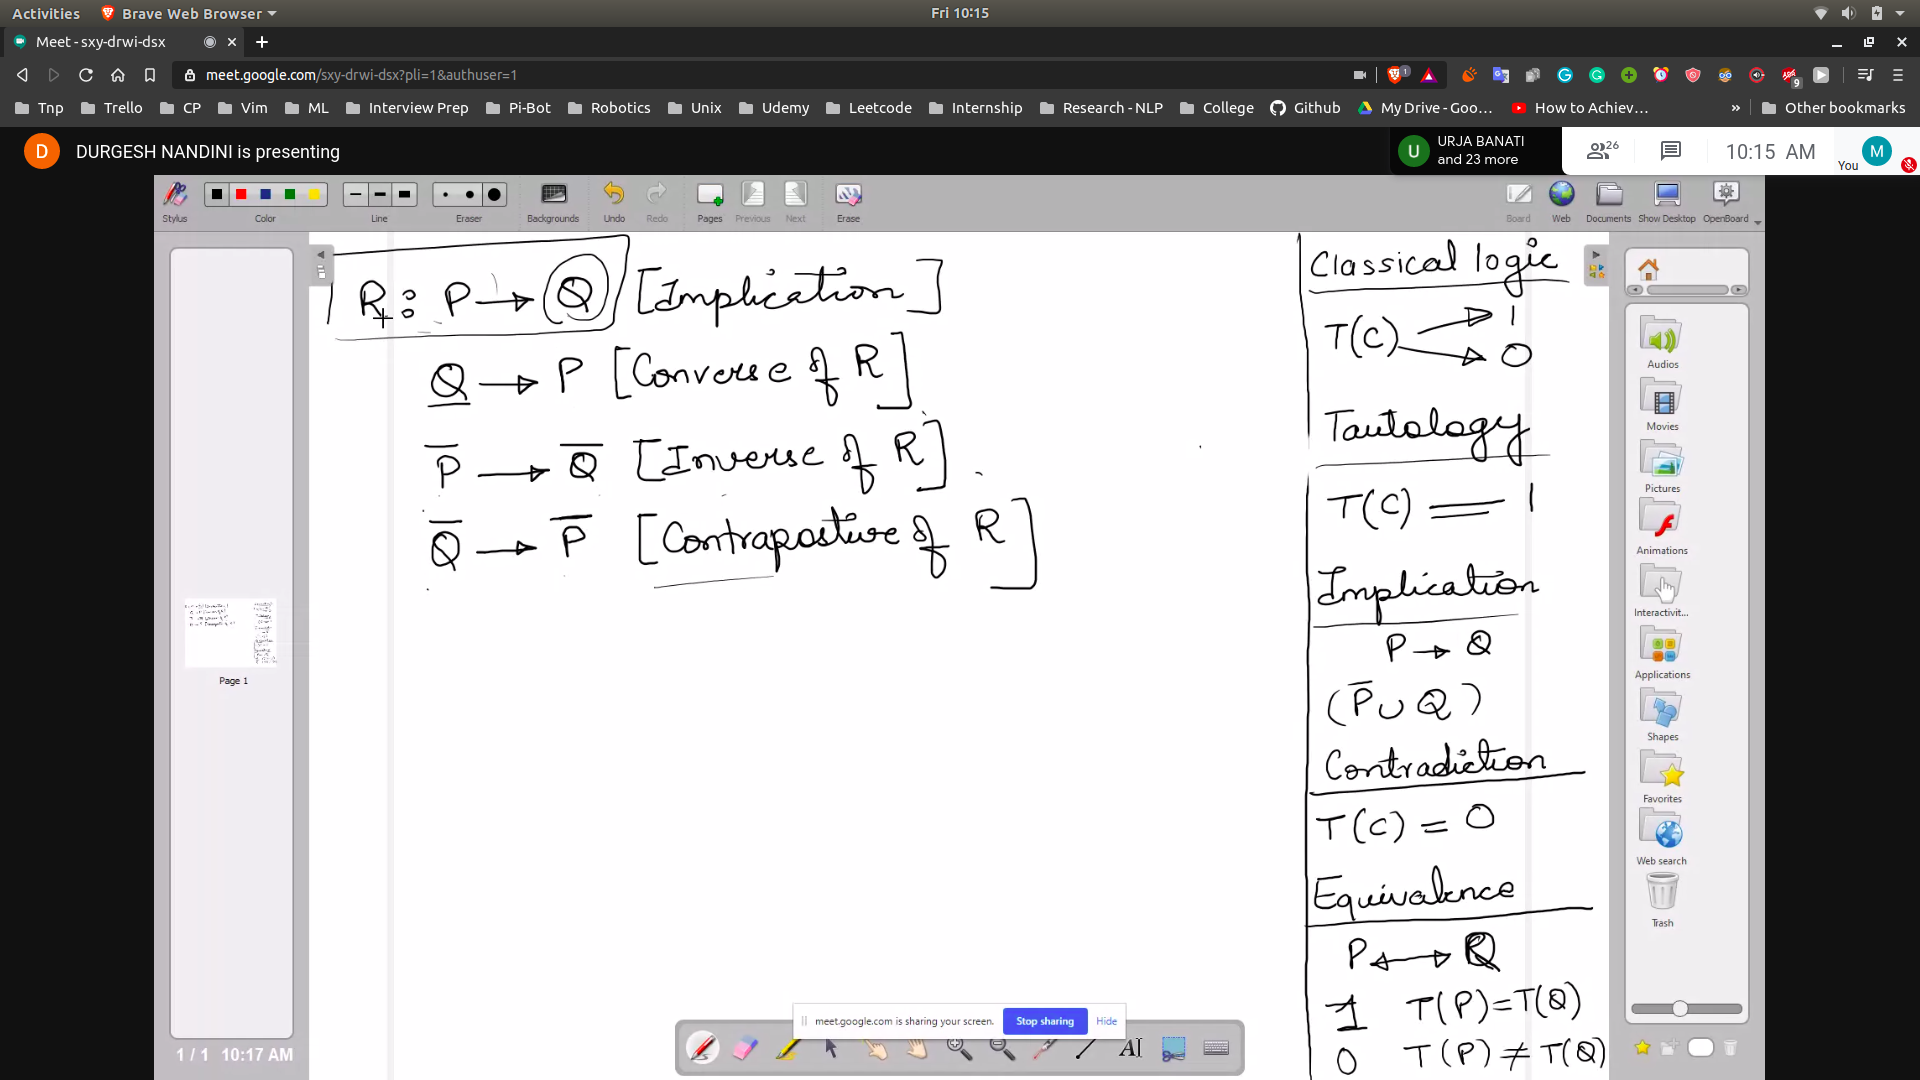 Activities Brave Web Browser Fri 10:15
Meet - sxy-drwi-dsx
meet.google.com/sxy-drwi-dsx?pli=1&authuser=1
Tnp Trello CP Vim ML Interview Prep Pi-Bot Robotics Unix Udemy Leetcode Internship Research - NLP College Github My Drive - Goo... How to Achiev... » Other bookmarks
D DURGESH NANDINI is presenting
U URJA BANATI and 23 more
26 10:15 AM You M
Stylus Color Line Eraser Backgrounds Undo Redo Pages Previous Next Erase Board Web Documents Show Desktop OpenBoard
R: P → Q [Implication]
Q → P [Converse of R]
P̅ → Q̅ [Inverse of R]
Q̅ → P̅ [Contrapostive of R]
Classical logic
T(C) → 1
→ 0
Tautology
T(C) = 1
Implication
P → Q
(P̅ ∪ Q)
Contradiction
T(C) = 0
Equivalence
P ↔ Q
1 T(P) = T(Q)
0 T(P) ≠ T(Q)
Page 1
1 / 1 10:17 AM
Audios
Movies
Pictures
Animations
Interactivit...
Applications
Shapes
Favorites
Web search
Trash
meet.google.com is sharing your screen. Stop sharing Hide